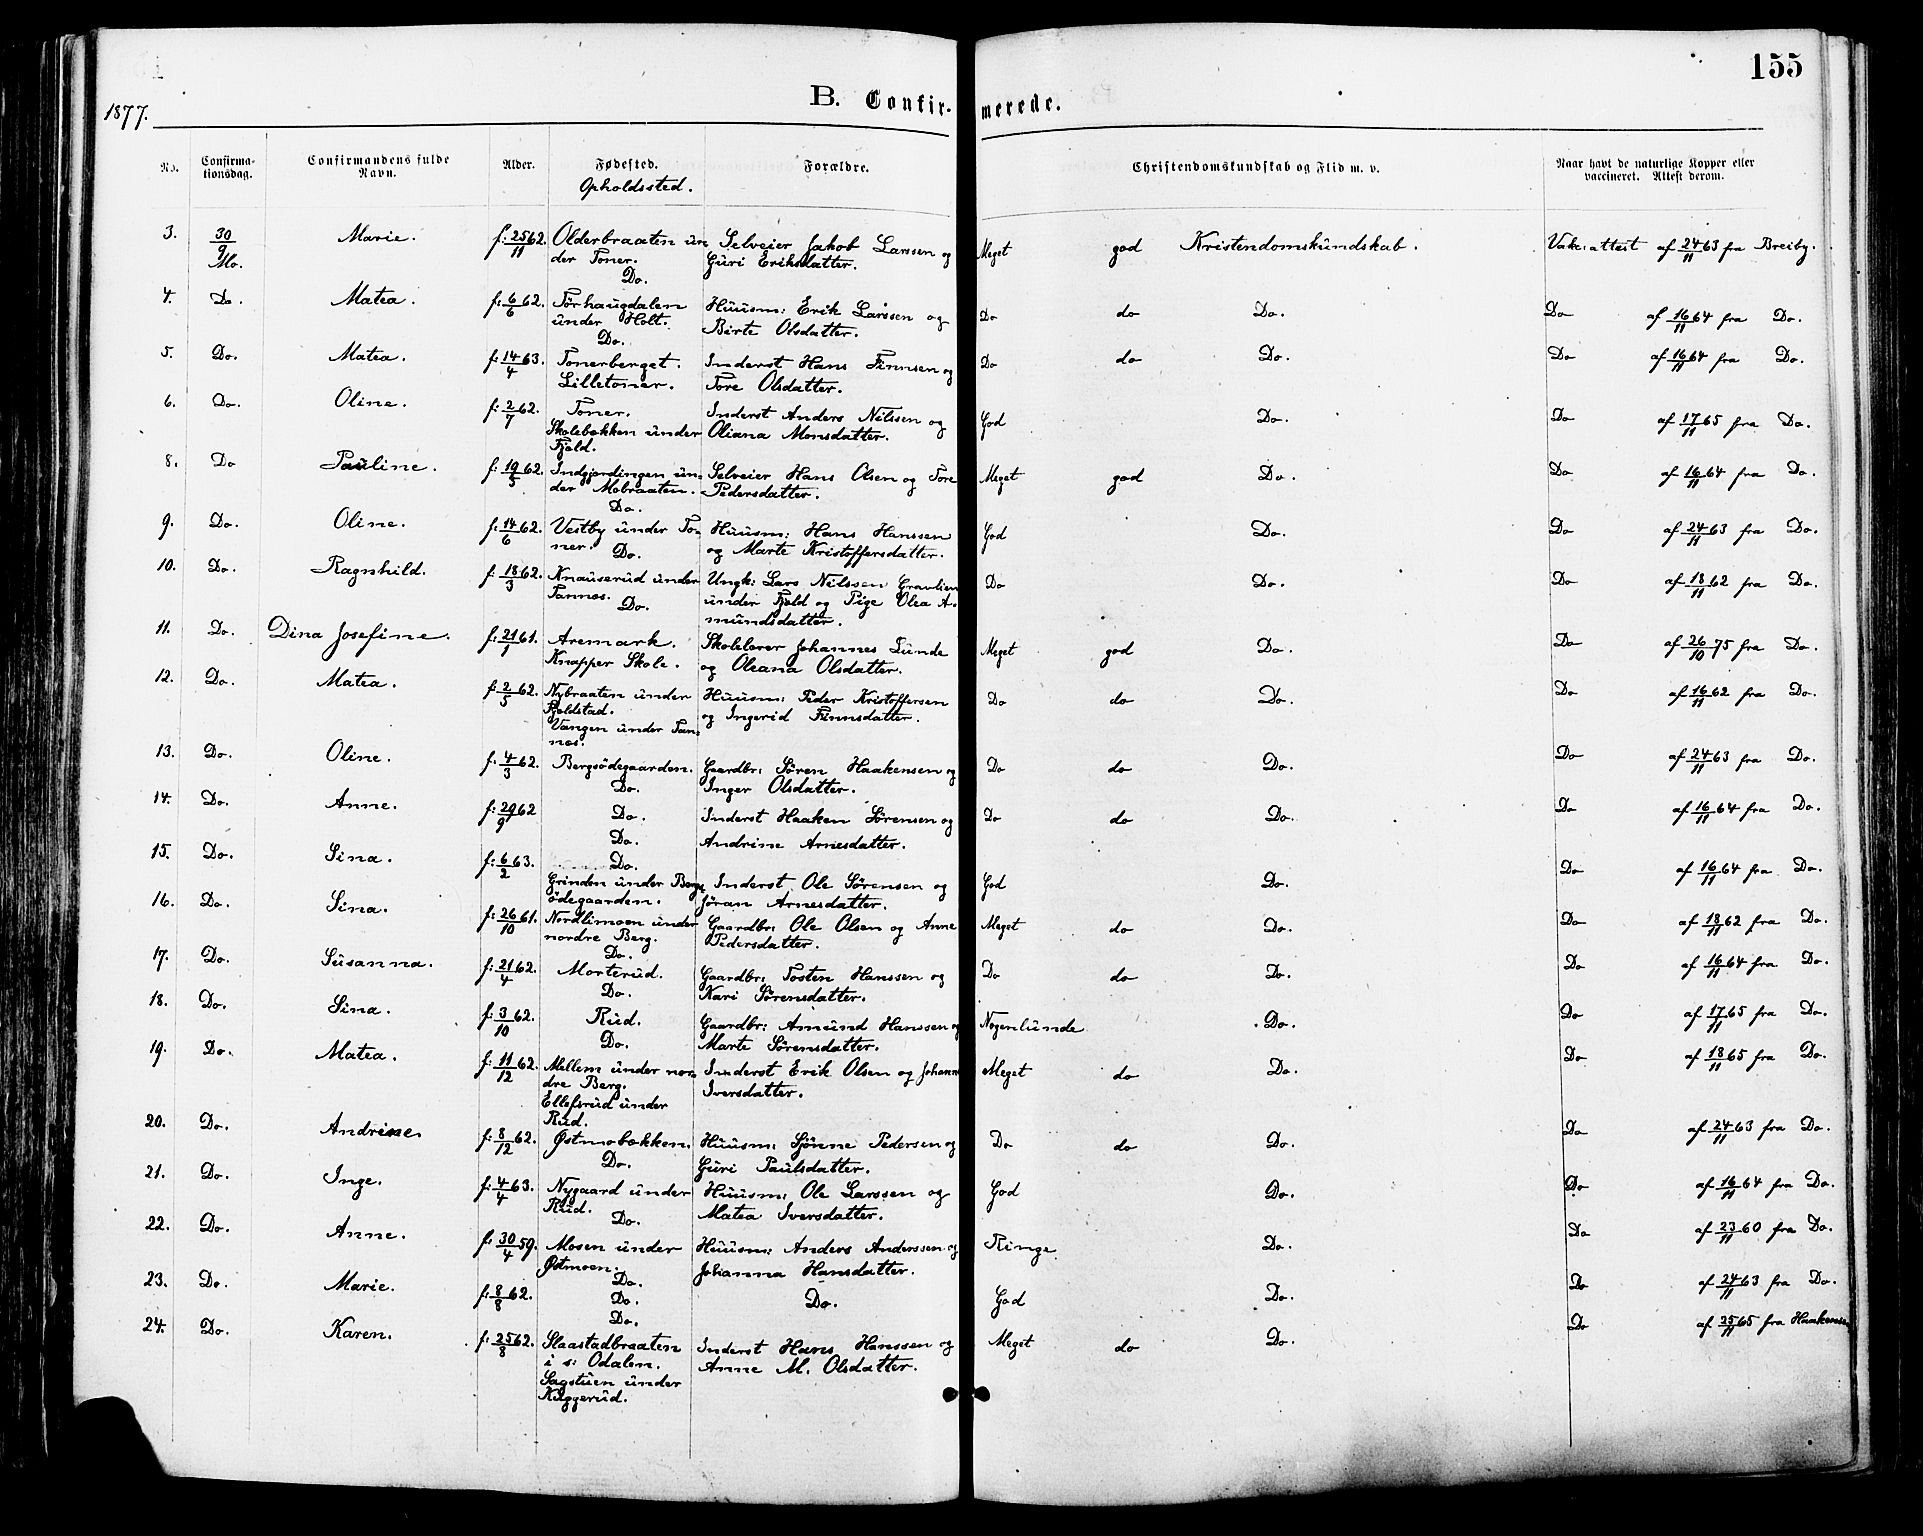 155
1877.
B. Confir- merede.
No. Confirma- Confirmandens fulde Alder. Fødested. Forældre. Christendomskundskab og Flid m. v. Naar havt de naturlige Kopper eller
tionsdag. Navn. Opholdssted. vaccineret. Attest derom.
3. 30/9 Marie. f: 25/11 62. Olderbraaten un Selveier Jakob Larssen og Meget god Kristendomskundskab. Vak: attest af 24/11 63 fra Breiby.
Mo. der Toner. Guri Eriksdatter.
Do.
4. Do. Matea. f: 6/6 62. Tørhaugdalen Huusm: Erik Larssen og Do do Do. Do af 16/11 64 fra Do.
under Holt. Birte Olsdatter.
Do.
5. Do. Matea. f: 14/4 63. Tonerberget. Inderst Hans Finnsen og Do do Do. Do af 16/11 64 fra Do.
Lilletoner. Tore Olsdatter.
6. Do. Oline. f: 2/7 62. Toner. Inderst Anders Nilssen og God Do. Do af 17/11 65 fra Do.
Skolebekken under Oliana Monsdatter.
Fjeld.
8. Do Pauline. f: 19/5 62. Indgjerdingen un- Selveier Hans Olsen og Tore Meget god Do. Do af 16/11 64 fra Do.
der Mobraaten. Pedersdatter.
Do.
9. Do. Oline. f: 14/6 62. Vestby under To- Huusm: Hans Hanssen God Do. Do af 24/11 63 fra Do.
ner. Do. og Marte Kristoffersdatter.
10. Do. Ragnhild. f: 18/3 62. Knauserud under Ungk: Lars Nilssen Gravlien Do Do. Do af 18/11 62 fra Do.
Tannes. under Fjeld og Pige Olea A-
Do. mundsdatter.
11. Do. Dina Josefine. f: 21/1 61. Aremark. Skolelærer Johannes Lunde Meget god Do. Do af 26/10 75 fra Do.
Knapper Skole. og Oleana Olsdatter.
12. Do. Matea. f: 2/5 62. Nybraaten under Huusm: Peder Kristoffersen Do do Do. Do af 16/11 62 fra Do.
Fjeldstad. og Ingerid Finnsdatter.
Vangen under Tan-
nes.
13. Do. Oline. f: 4/3 62. Bergsödegaarden. Gaardbr: Søren Haakensen og Do do Do. Do af 24/11 63 fra Do.
Do. Inger Olsdatter.
14. Do. Anne. f: 29/9 62 Do. Inderst Haaken Sørensen og Do do Do. Do af 16/11 64 fra Do.
Do. Andrine Arnesdatter.
15. Do. Sina. f: 6/2 63. Do. Inderst Ole Sørensen og God Do. Do af 16/11 64 fra Do.
Grinden under Bergs Jøran Arnesdatter.
ödegaarden.
16. Do. Sina. f: 26/10 61. Nordlimoen under Gaardbr: Ole Olsen og Anne Meget do Do. Do af 18/11 62 fra Do.
nordre Berg. Pedersdatter.
Do.
17. Do. Susanna. f: 21/4 62. Morterud. Gaardbr: Tosten Hanssen og Do do Do. Do af 16/11 64 fra Do.
Do. Kari Sørensdatter.
18. Do. Sina. f: 3/10 62. Rud. Gaardbr: Amund Hanssen og Nogenlunde Do. Do af 17/11 65 fra Do.
Do. Marte Sørensdatter.
19. Do. Matea. f: 11/12 62. Mellem under nor- Inderst Erik Olsen og Johanne Meget do Do. Do af 18/11 65 fra Do.
dre Berg. Iversdatter.
Ellefsrud under
Rud.
20. Do. Andrine. f: 8/12 62. Østmobækken. Huusm: Sjønne Pedersen og Do do Do. Do af 24/11 63 fra Do.
Do. Guri Paulsdatter.
21. Do. Inge. f: 4/4 63. Nygaard under Huusm: Ole Larssen og God Do. Do af 16/11 64 fra Do.
Rud. Matea Iversdatter.
Do.
22. Do. Anne. f: 30/4 59. Mosen under Huusm: Anders Anderssen og Ringe Do. Do af 23/11 60 fra Do.
Østmoen. Johanna Hansdatter.
Do.
23. Do. Marie. f: 8/8 62. Do. Do. God Do. Do af 24/11 63 fra Do.
Do.
24. Do. Karen. f: 25/8 62. Slaastadbraaten Inderst Hans Hanssen og Meget do Do. Do af 25/11 65 fra
i s: Odalen. Anne M. Olsdatter.
Sagstuen under
Kuggerud.